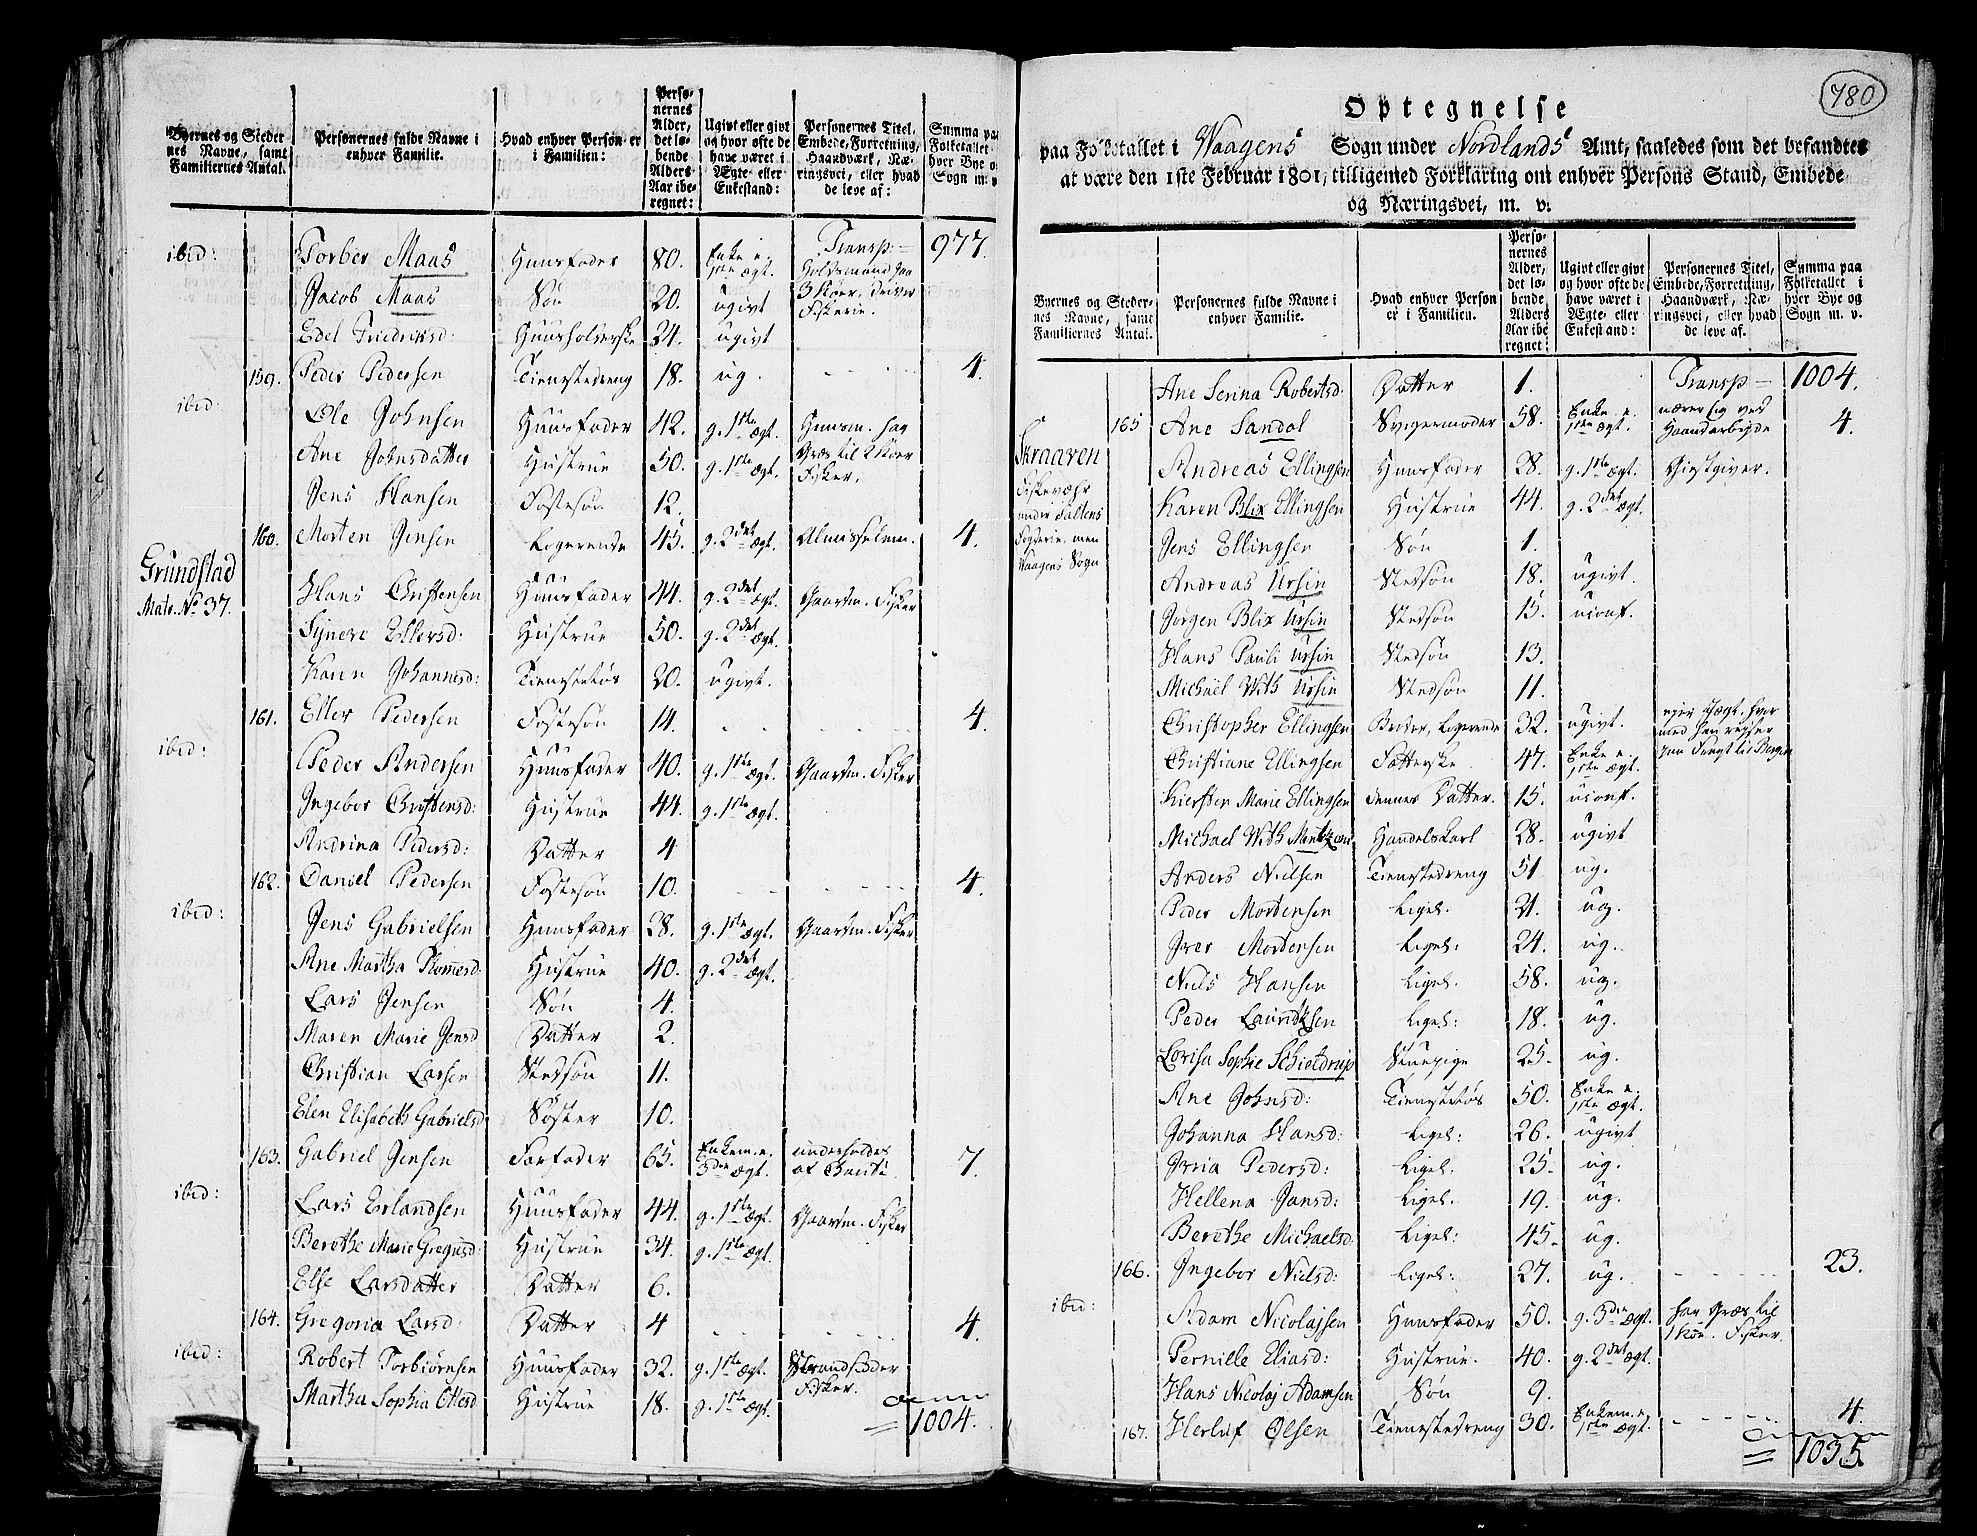 Byernes og Steder
nes Navne, samt
Familiernes Antal.
Personernes fulde Navne i
enhver Familie.
Hvad enhver Person er
i Familien:
Perso-
nernes
Alder,
det lø-
bende
Alders
Aar ibe-
regnet:
Ugivt eller givt
og hvor ofte de
have været i
Ægte- eller
Enkestand:
Personernes Titel,
Embede, Forretning,
Haandværk, Næ-
ringsvei, eller hvad
de leve af:
Summa paa
Folketallet
hver Bye o
Sogn m. v
Transp:= 977.
ibid: Torber Maas Huusfader 80. Enke e. 1ste ægt. Holdsmand paa
Jacob Maas Søn 20. ugivt 3 Kiør. driver Fiskerie.
Edel Friedriksd: Huusholderske 24. ugivt
159. Peder Pedersen Tienestedreng 18. ug. 4.
ibid. Ole Johnsen Huusfader 42. g. 1ste ægt. Huusm. har
Ane Johnsdatter Hustrue 50. g. 1ste ægt. Græs til 2 Kiør Fisker.
Jens Hansen Fostersøn 12.
160. Morten Jensen Logerende 45. g. 2det ægt. Almisselem. 4.
Grundstad
Matr. No 37. Hans Christensen Huusfader 44. g. 2det ægt. Gaardm. Fisker
Synere Ellersd: Hustrue 50. g. 2det ægt.
Karen Johannesd: Tienestetøs 20. ugivt.
161. Eller Pedersen Fostersøn 14. 4.
ibid: Peder Andersen Huusfader 40. g. 1ste ægt. Gaardm. Fisker
Ingebor Christensd: Hustrue 44. g. 1ste ægt.
Andrina Pedersd: Datter 4
162. Daniel Pedersen Fostersøn 10. 4.
ibid: Jens Gabrielsen Huusfader 28. g. 1ste ægt. Gaardm. Fisker
Ane Martha Thomesd: Hustrue 40. g. 2det ægt.
Lars Jensen Søn 4.
Maren Marie Jensd Datter 2.
Christian Larsen Stedsøn 11.
Elen Elisabeth Gabrielsd: Søster 10.
163. Gabriel Jensen Farfader 65. Enkem. e. 3die ægt. underholdes af 7.
ibid: Lars Erlandsen Huusfader 44. g. 1ste ægt. Gaardm. Fisker
Berethe Marie Gregusd: Hustrue 34. g. 1ste ægt.
Else Larsdatter Datter 6.
164. Gregoria Larsd: Datter 4 4.
ibid: Robert Torbiørnsen Huusfader 32. g. 1ste ægt. Strandsidder
Martha Sophia Ottesd Hustrue 18. g. 1ste ægt. Fisker.
= 1004.
780
Optegnelse
paa Folketallet i Waagens Sogn under Nordlands Amt, saaledes som det befandtes
at være den 1ste Februar 1801, tilligemed Forklaring om enhver Persons Stand, Embede
og Næringsvei, m. v.
Byernes og Steder-
nes Navne, samt
Familiernes Antal.
Personernes fulde Navne i
enhver Familie.
Hvad enhver Person
er i Familien.
Perso-
nernes
Alder,
det lø-
bende
Alders
Aar ibe
regnet:
Ugivt eller givt
og hvor ofte de
have været i
Ægte- eller
Enkestand:
Personernes Titel,
Embede, Forretning,
Haandværk, Næ-
ringsvei, eller hvad
de leve af.
Summa paa
Folketallet i
hver Bye og
Sogn m. v.
Ane Serina Robertsd: Datter 1. Transp= 1004.
165 Ane Sandol Svigermoder 58. Enke e. 1ste ægt. nærer sig ved Haandarbeyde 4.
Skraaven
Fiskevæhr
under Saltens
Fogderie, men
Vaagens Sogn
Andreas Ellingsen Huusfader 28. g. 1ste ægt. Giestgiver.
Karen Blix Ellingsen Hustrue 44. g. 2det ægt.
Jens Ellingsen Søn 1.
Andreas Ursin Stedsøn 18. ugivt.
Jørgen Blix Ursin Stedsøn 15. uconf.
Hans Pauli Ursin Stedsøn 13.
Michael With Ursin Stedsøn 11.
Christopher Ellingsen Broder, Logerende 32. ugivt. eyer Jægt. hvor
Christiane Ellingsen Fatterske 47. Enke e. 1ste ægt. med han reyser paa Fragt til Bergen
Kiersten Marie Ellingsen dennes Datter. 15. uconf.
Michael With Mentzoni Handelskarl 28. ugivt
Anders Nielsen Tienestedreng 51 ug.
Peder Mortensen Ligel. 21. ug.
Iver Mortensen Ligel: 24. ug.
Niels Hansen Ligel. 58. ug.
Peder Lauridsen Ligel: 18. ug.
Lovisa Sophie Schieldrup Stuepige 25. ug.
Ane Johnsd: Tienestetøs 50. Enke e. 1ste ægt.
Johanna Hansd: Ligel: 26. ugivt
Pedersd: Ligel: 25. ug.
Hellena Jansd: Ligel. 19. ug.
Berethe Michaelsd: Ligel: 45. ug.
166. Ingebor Nielsd: Ligel: 27. ug. 23.
ibid: Adam Nicolajsen Huusfader 50. g. 3die ægt. har Græs til
Pernille Eliasd: Hustrue. 40. g. 2det ægt. 1 Koe. Fisker.
Hans Nicolaj Adamsen Søn 9.
167. Herluf Olsen Tienestedreng 30. Enkem. e. 1ste ægt. 4
= 1035.